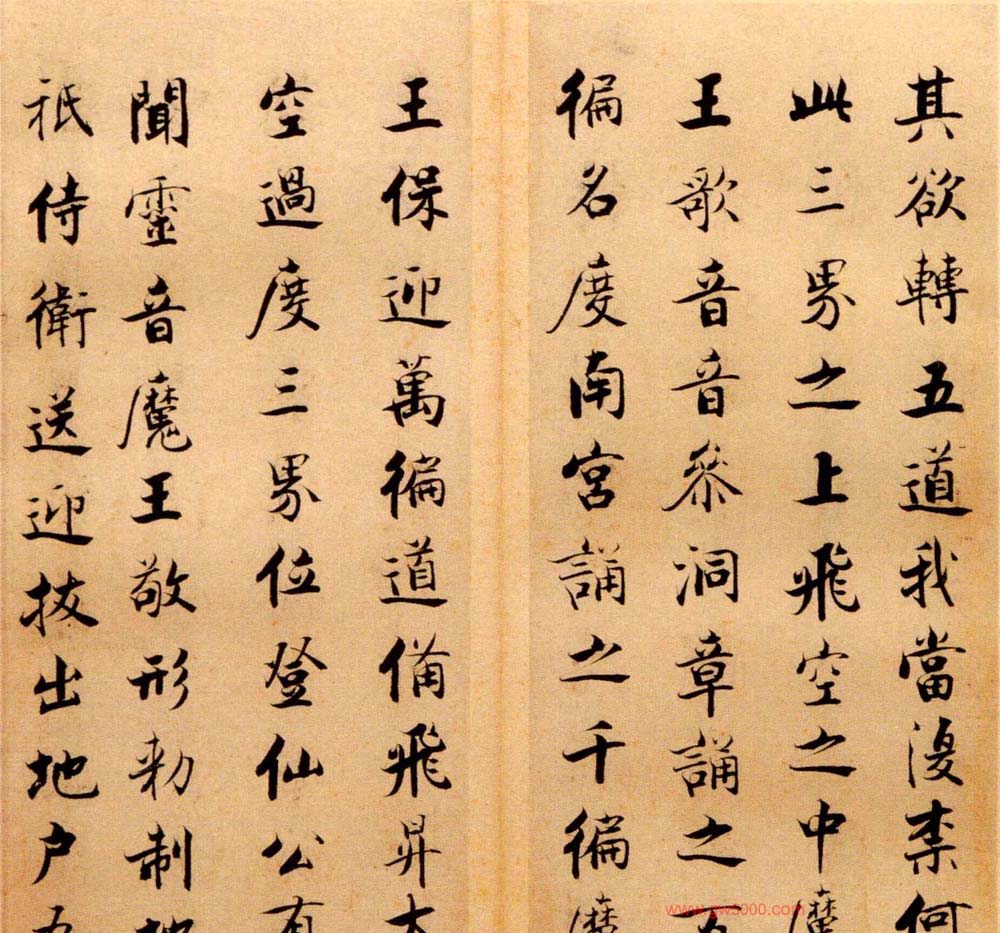 其欲轉五道我當復柰何
此三界之上飛空之中魔
王歌音音參洞章誦之百
徧名度南宮誦之千徧魔
王保迎萬徧道備飛昇太
空過度三界位登仙公有
聞靈音魔王敬形勑制地
祇侍衛送迎拔出地户五
www.gw5000.com